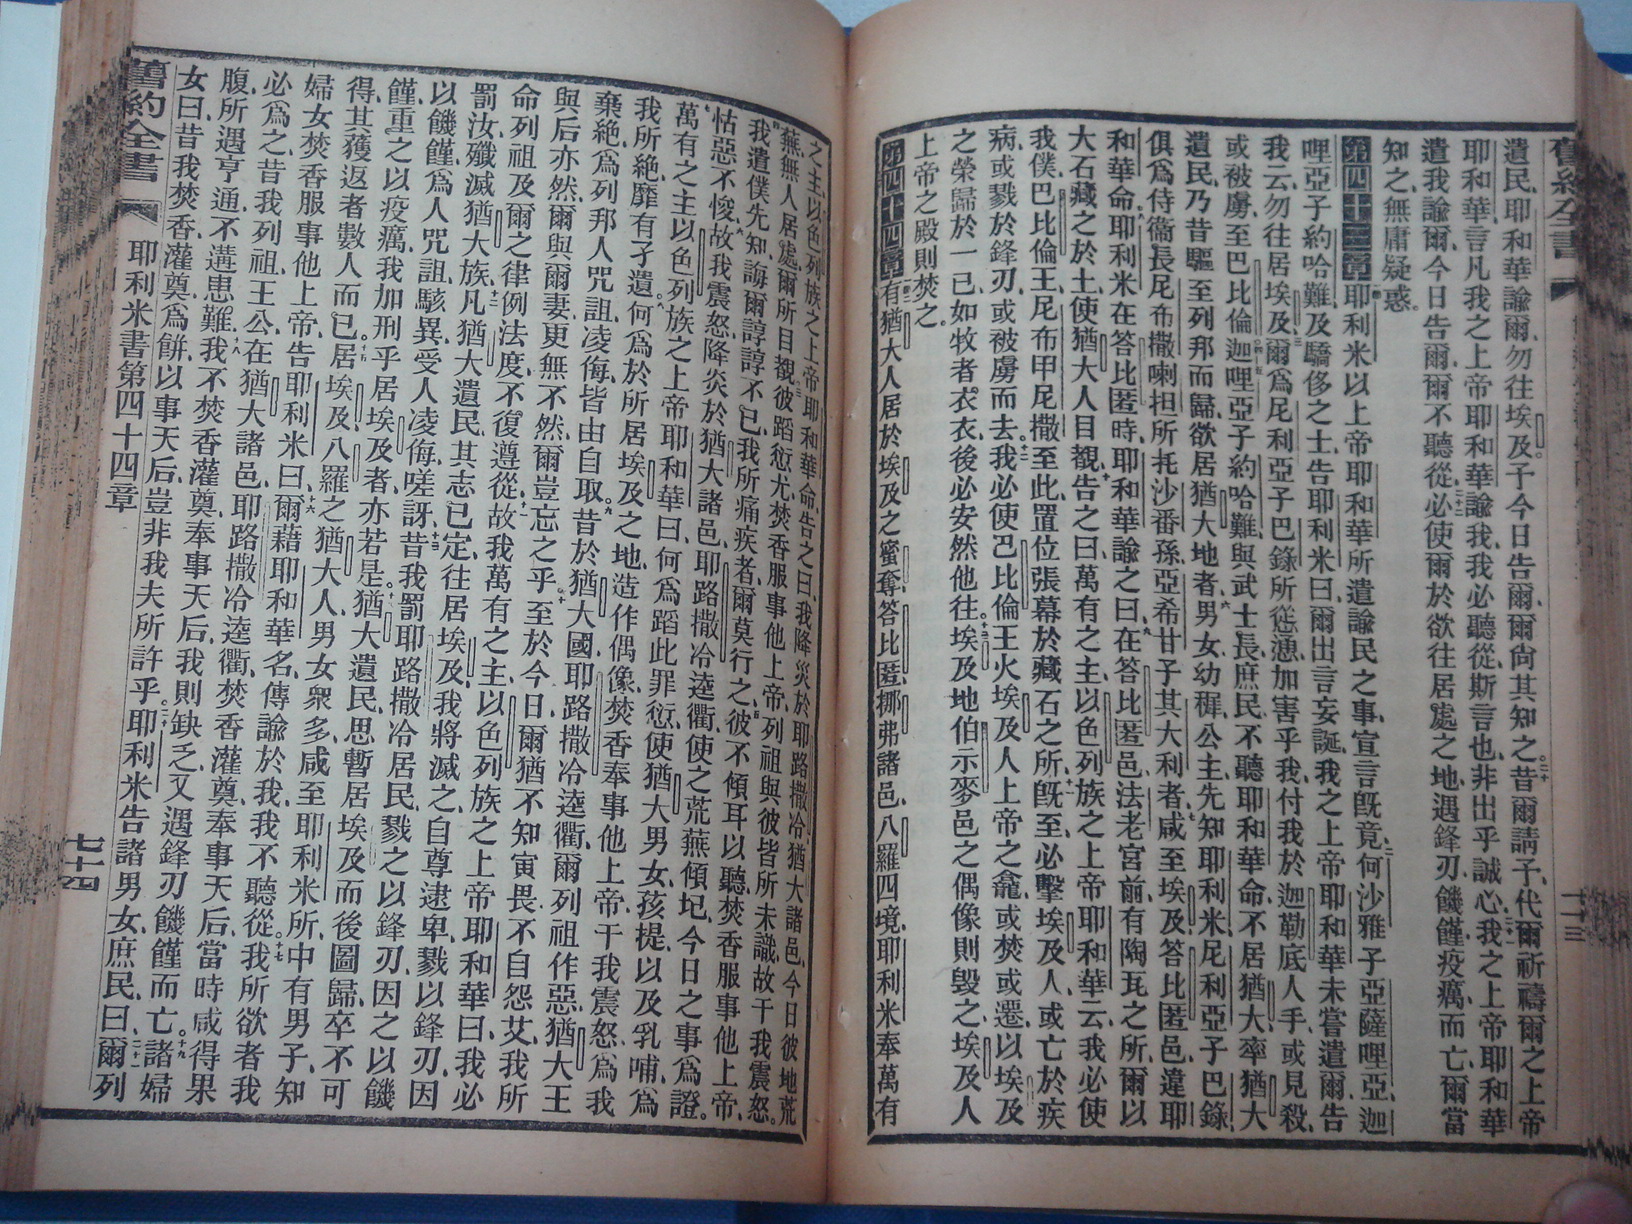 遺民、耶和華諭爾、勿往埃及、予今日告爾、爾尚其知之、二十昔爾請予、代爾祈禱爾之上帝
耶和華言、凡我之上帝耶和華諭我、我必聽從、斯言也、非出乎誠心、二十一我之上帝耶和華
遣我諭爾、今日告爾、爾不聽從、二十二必使爾於欲往居處之地、遇鋒刃、饑饉、疫癘而亡、爾當
知之、無庸疑惑。
第四十三章 一耶利米以上帝耶和華所遣諭民之事、宣言既竟、二何沙雅子亞薩哩亞、迦
哩亞子約哈難、及驕侈之士、告耶利米曰、爾出言妄誕、我之上帝耶和華未嘗遣爾告
我云、勿往居埃及、三爾爲尼利亞子巴錄所慫慂、加害乎我、付我於迦勒底人手、或見殺、
或被虜至巴比倫、四五迦哩亞子約哈難、與武士長庶民、不聽耶和華命、不居猶大、率猶大
遺民、乃昔驅至列邦而歸、欲居猶大地者、六男女幼穉公主、先知耶利米、尼利亞子巴錄、
俱爲侍衞長尼布撒喇坦所托沙番孫亞希甘子其大利者、七咸至埃及答比匿邑、違耶
和華命、八耶利米在答比匿時、耶和華諭之曰、九在答比匿邑、法老宮前、有陶瓦之所、爾以
大石藏之於土、使猶大人目覩、十告之曰、萬有之主、以色列族之上帝耶和華云、我必使
我僕巴比倫王尼布甲尼撒至此、置位張幕於藏石之所、十一既至、必擊埃及人、或亡於疾
病、或戮於鋒刃、或被虜而去、十二我必使巴比倫王火埃及人上帝之龕、或焚或遷、以埃及
之榮歸於一己、如牧者衣衣、後必安然他往、十三埃及地伯示麥邑之偶像則毀之、埃及人
上帝之殿則焚之。
第四十四章 一有猶大人居於埃及之蜜奪、答比匿、挪弗諸邑、八羅四境、耶利米奉萬有
之主以色列族之上帝耶和華命、告之曰、二我降災於耶路撒冷、猶大諸邑、今日彼地荒
蕪、無人居處、爾所目覩、三彼蹈愆尤、焚香服事他上帝、列祖與彼皆所未識、故干我震怒。
四我遣僕先知、誨爾諄諄不已、我所痛疾者、爾莫行之、五彼不傾耳以聽、焚香服事他上帝、
怙惡不悛、六故我震怒、降炎於猶大諸邑、耶路撒冷逵衢、使之荒蕪傾圮、今日之事爲證。
七萬有之主、以色列族之上帝耶和華曰、何爲蹈此罪愆、使猶大男女孩提、以及乳哺、爲
我所絶、靡有孑遺。八何爲於所居埃及之地、造作偶像、焚香奉事他上帝、干我震怒、爲我
棄絶、爲列邦人咒詛凌侮、皆由自取、九昔於猶大國、耶路撒冷逵衢、爾列祖作惡、猶大王
與后亦然、爾與爾妻、更無不然、爾豈忘之乎、十至於今日、爾猶不知寅畏、不自怨艾、我所
命列祖及爾之律例法度、不復遵從、十一故我萬有之主、以色列族之上帝耶和華曰、我必
罰汝、殲滅猶大族、十二凡猶大遺民、其志已定、往居埃及、我將滅之、自尊逮卑、戮以鋒刃、因
以饑饉、爲人咒詛駭異、受人凌侮嗟訝、十三昔我罰耶路撒冷居民、戮之以鋒刃、因之以饑
饉、重之以疫癘、我加刑乎居埃及者、亦若是、十四猶大遺民、思暫居埃及、而後圖歸、卒不可
得、其獲返者數人而已。十五居埃及八羅之猶大人、男女衆多、咸至耶利米所、中有男子、知
婦女焚香服事他上帝、告耶利米曰、十六爾藉耶和華名、傳諭於我、我不聽從、十七我所欲者、我
必爲之、昔我列祖王公在猶大諸邑、耶路撒冷逵衢、焚香灌奠、奉事天后、當時咸得果
腹、所遇亨通、不遘患難、十八我不焚香灌奠、奉事天后、我則缺乏、又遇鋒刃饑饉而亡、十九諸婦
女曰、昔我焚香灌奠爲餅、以事天后、豈非我夫所許乎、二十耶利米告諸男女庶民曰、二十一爾列
舊約全書 耶利米書第四十四章 七十四